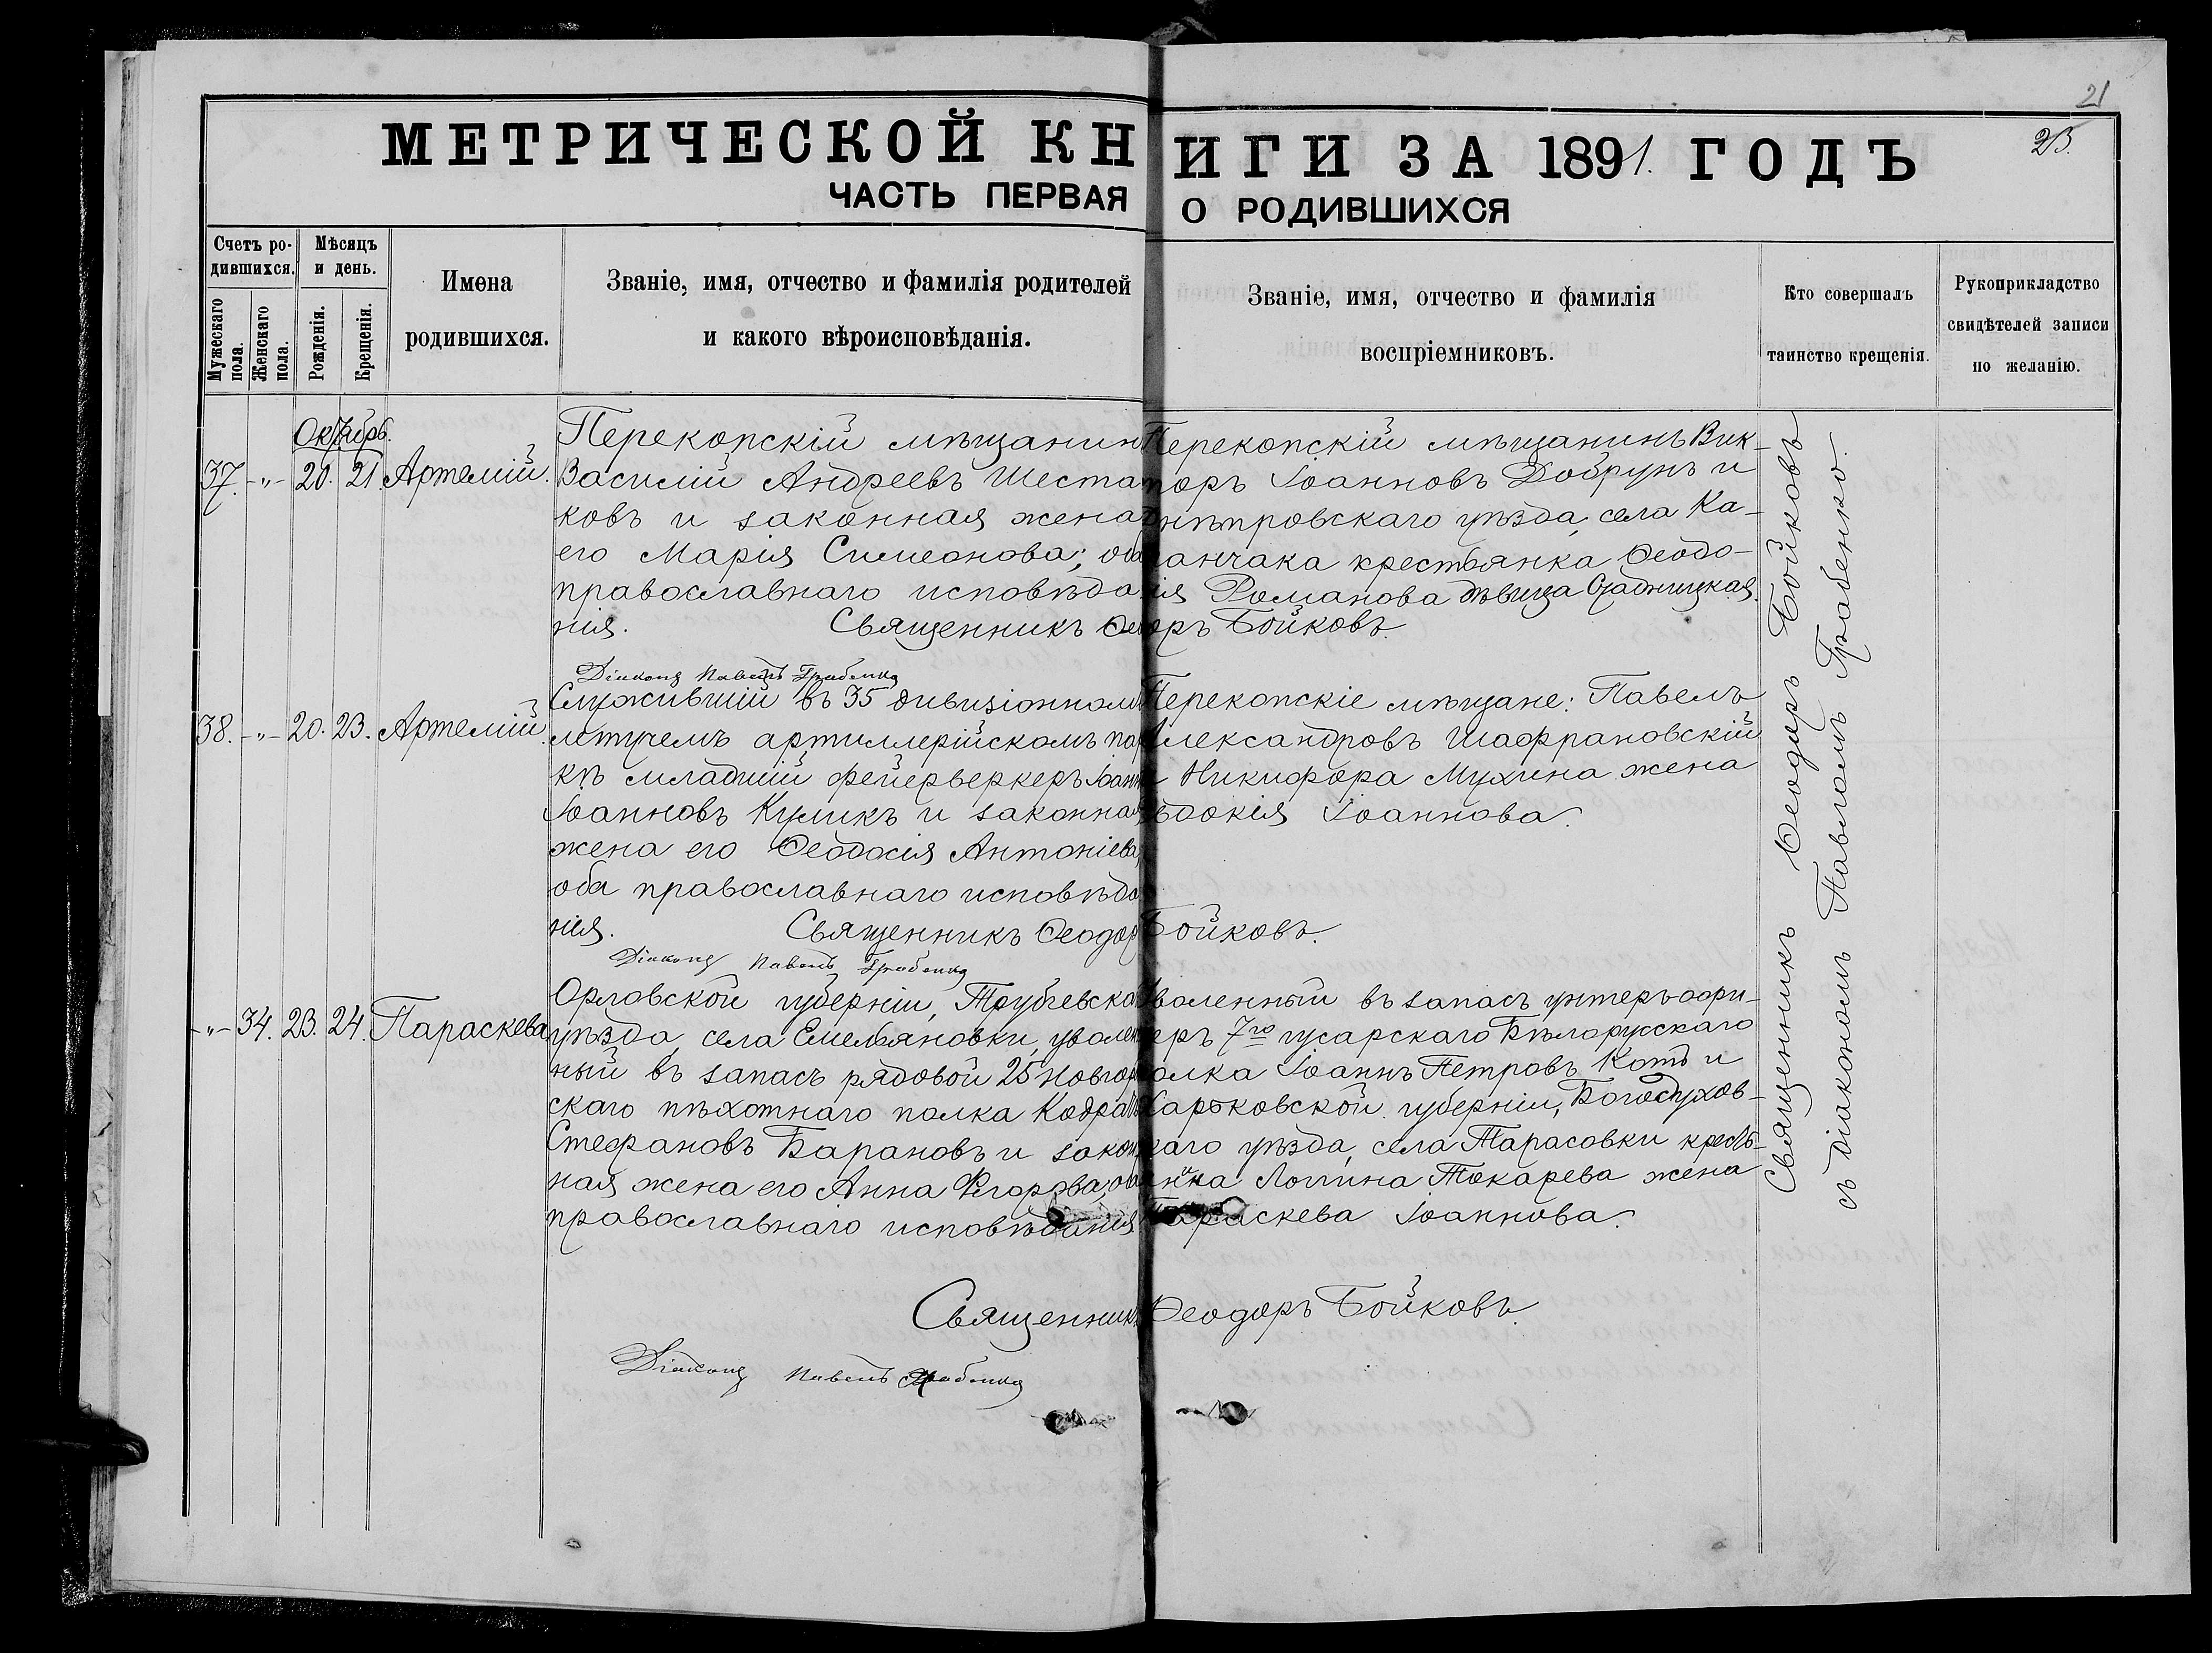 21
23.
МЕТРИЧЕСКОЙ КНИГИ ЗА 1891. ГОДЪ
ЧАСТЬ ПЕРВАЯ О РОДИВШИХСЯ
Счетъ ро-
дившихся.
Мужескаго
пола.
Женскаго
пола.
Мѣсяцъ
и день.
Рожденія.
Крещенія.
Имена
родившихся.
Званіе, имя, отчество и фамилія родителей
и какого вѣроисповѣданія.
Званіе, имя, отчество и фамилія
воспріемниковъ.
Кто совершалъ
таинство крещенія.
Рукоприкладство
свидѣтелей записи
по желанію.
Октябрь.
37. -„- 20. 21. Артемій.
Перекопскій мѣщанин
Василій Андреевъ Шеста
ковъ и законная жена
его Марія Симеонова; оба
православнаго исповѣда
нія.
Перекопскій мѣщанинъ Вик-
торъ Іоанновъ Добрунъ и
Днѣпровскаго уѣзда, села Ка-
ланчака крестьянка Ѳеодо-
сія Романова дѣвица
Священникъ Ѳеодоръ Бойковъ.
Діаконъ Павелъ Грабенко
38. -„- 20. 23. Артемій.
Служившій въ 35 дивизіонном
летучемъ артиллерійскомъ пар
кѣ младшій фейерверкеръ Іоанн
Іоанновъ Куликъ и законная
жена его Ѳеодосія Антоніева,
оба православнаго исповѣда
нія.
Перекопскіе мѣщане: Павелъ
Александровъ Шафрановскій
и Никифора Мухина жена
Евдокія Іоаннова.
Священникъ Ѳеодоръ Бойковъ.
Діаконъ Павелъ Грабенко
-„- 34. 23. 24. Параскева
Орловской губерніи, Трубчевска
уѣзда, села Емельяновки, уволен
ный въ запасъ рядовой 25 Новгор
скаго пѣхотнаго полка Кодратъ
Стефановъ Барановъ и закон
ная жена его Анна Ѳегорова, оба
православнаго исповѣданія.
Уволенный въ запасъ унтеръ-офи-
церъ 7го гусарскаго Бѣлорусскаго
полка Іоаннъ Петровъ Котъ и
Харьковской губерніи, Богодухов-
скаго уѣзда, села Тарасовки кресть-
янка Логгина Токарева жена
Параскева Іоаннова.
Священникъ Ѳеодоръ Бойковъ.
Діаконъ Павелъ Грабенко
Священникъ Ѳеодоръ Бойковъ
съ діакономъ Павломъ Грабенко.